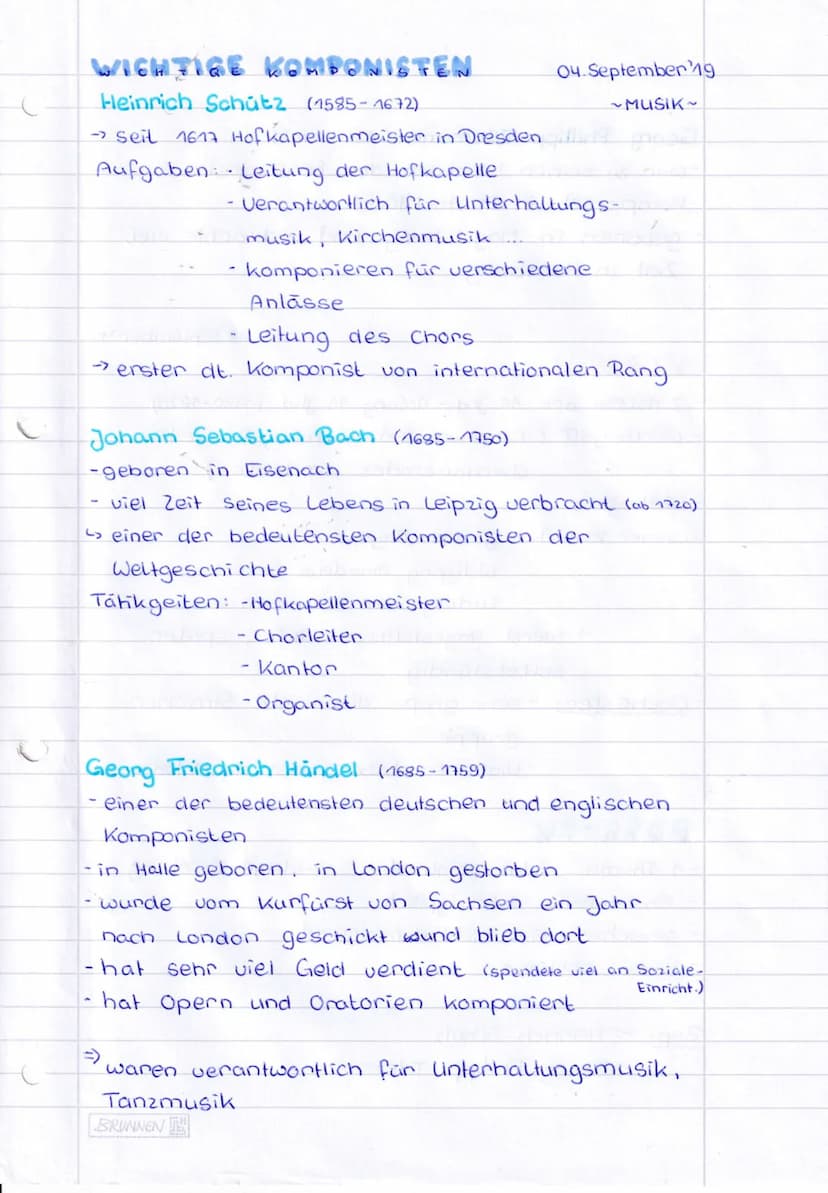 WICHTIGE KOMPONISTEN
04. September '19
Heinrich Schütz (1585-1672)
~MUSIK~
-> seit 1617 Hofkapellenmeister in Dresden
Aufgaben: - Leitung der Hofkapelle
- verantwortlich für Unterhaltungs-
musik, Kirchenmusik ...
- komponieren für verschiedene
Anlässe
- Leitung des Chors
-> erster dt. Komponist von internationalen Rang
Johann Sebastian Bach (1685-1750)
- geboren in Eisenach
- viel Zeit seines Lebens in Leipzig verbracht (ab 1720)
↳ einer der bedeutensten Komponisten der
Weltgeschichte
Tätikgeiten: - Hofkapellenmeister
- Chorleiter
- Kantor
- Organist
Georg Friedrich Händel (1685-1759)
- einer der bedeutensten deutschen und englischen
Komponisten
- in Halle geboren, in London gestorben
- wurde vom Kurfürst von Sachsen ein Jahr
nach London geschickt und blieb dort
- hat sehr viel Geld verdient (spendete viel an Soziale-
Einricht.)
- hat Opern und Oratorien komponiert
=> waren verantwortlich für Unterhaltungsmusik,
Tanzmusik
BRUNNEN